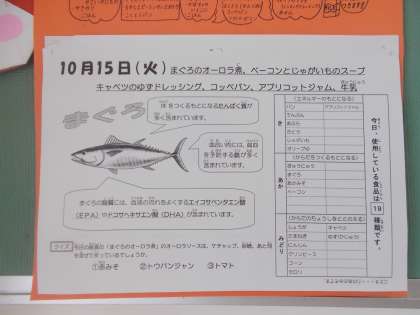 10月15日(火) まぐろのオーロラ煮、ベーコンとじゃがいものスープ
キャベツのゆずドレッシング、コッペパン、アプリコットジャム、牛乳
まぐろ
体をつくるもとになるたんぱく質が
多く含まれています。
血合い肉には、貧血
を予防する鉄が多
く含まれています。
まぐろの脂質には、血液の流れをよくするエイコサペンタエン酸
(EPA)やドコサヘキサエン酸(DHA)が含まれています。
クイズ 今日の給食の「まぐろのオーロラ煮」のオーロラソースは、ケチャップ、砂糖、あと何
を混ぜて作っているでしょうか。
①赤みそ ②トウバンジャン ③トマト
今日、使用している食品は
19
種類です。
き
(エネルギーのもとになる)
パン
アプリコットジャム
でんぷん
あぶら
さとう
じゃがいも
オリーブ油
あか
(からだをつくるもとになる)
ぎゅうにゅう
まぐろ
あかみそ
ベーコン
みどり
(からだのちょうしをととのえる)
しょうが
キャベツ
たまねぎ
ゆず
にんじん
グリンピース
コーン
セロリ